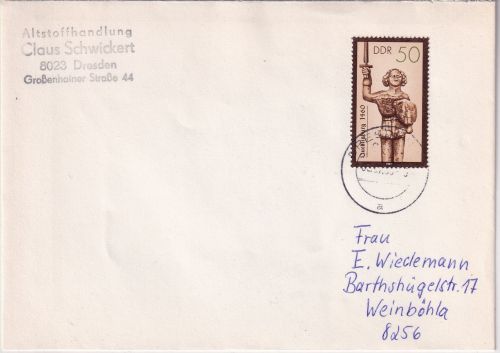 Altstoffhandlung
Claus Schwickert
8023 Dresden
Großenhainer Straße 44
DDR 50
1460
a
Frau
E. Wiedemann
Barthshügelstr. 17
Weinböhla
8256